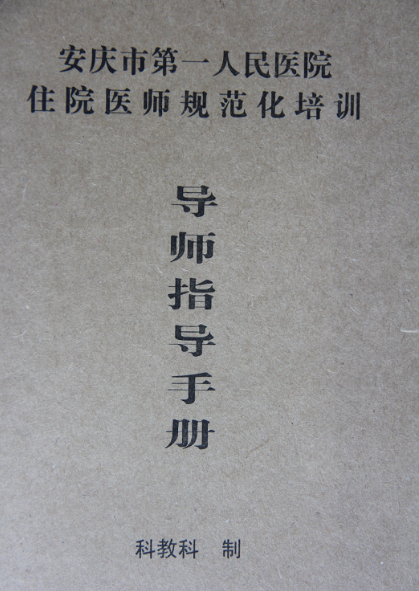 安庆市第一人民医院
住院医师规范化培训
导师指导手册
科教科 制